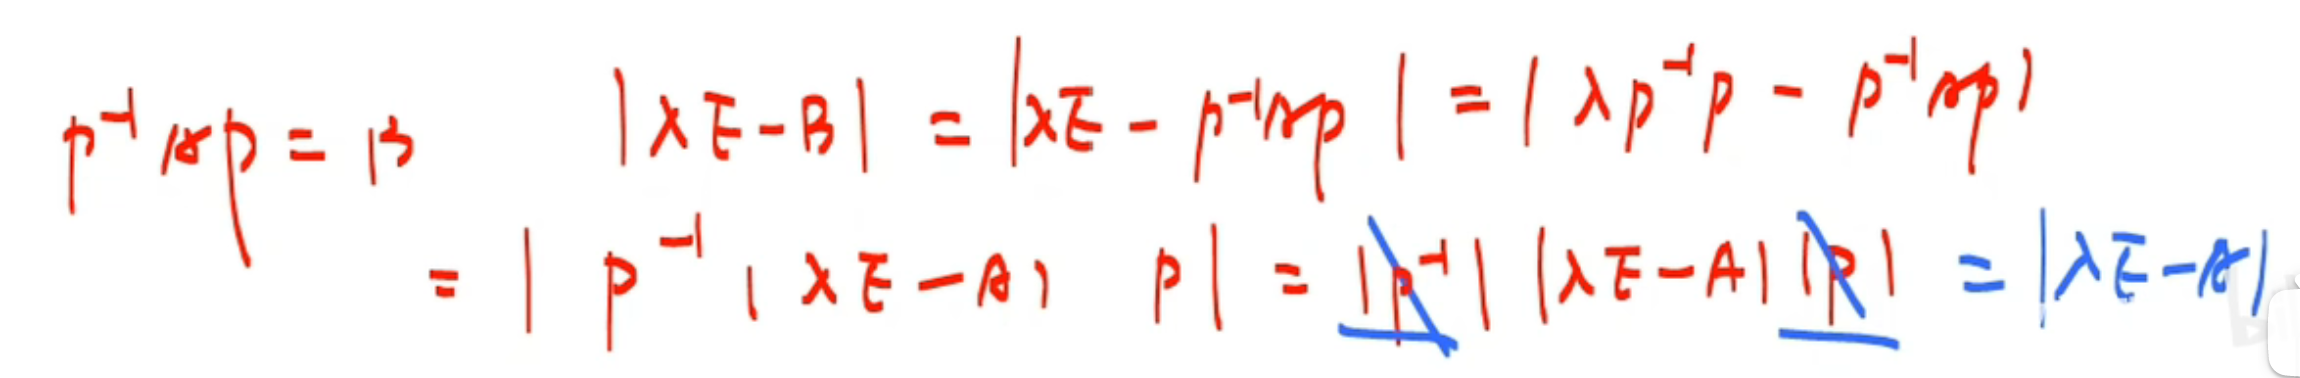 P⁻¹AP = B |λE-B| = |λE - P⁻¹AP| = |λP⁻¹P - P⁻¹AP|
= |P⁻¹(λE-A)P| = |P⁻¹||λE-A||P| = |λE-A|